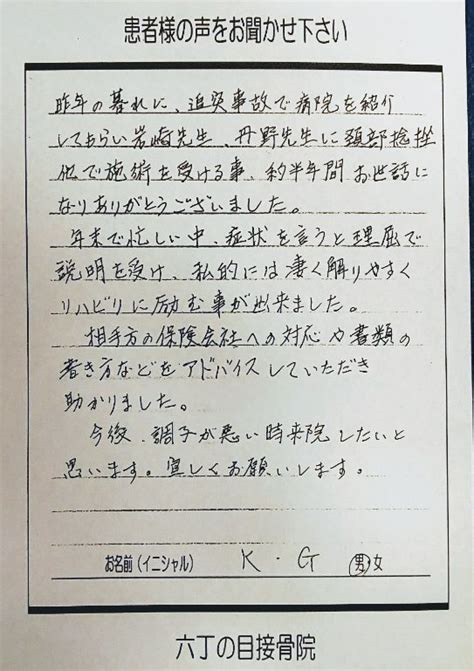 患者様の声をお聞かせ下さい
昨年の暮れに、追突事故で病院を紹介
してもらい岩崎先生、丹野先生に頚部捻挫
他で施術を受ける事、約半年間お世話に
なりありがとうございました。
年末で忙しい中、症状を言うと理屈で
説明を受け、私的には凄く解りやすく
リハビリに励む事が出来ました。
相手方の保険会社への対応や書類の
書き方などをアドバイスしていただき
助かりました。
今後、調子が悪い時来院したいと
思います。宜しくお願いします。
お名前(イニシャル) K・G 男女
六丁の目接骨院